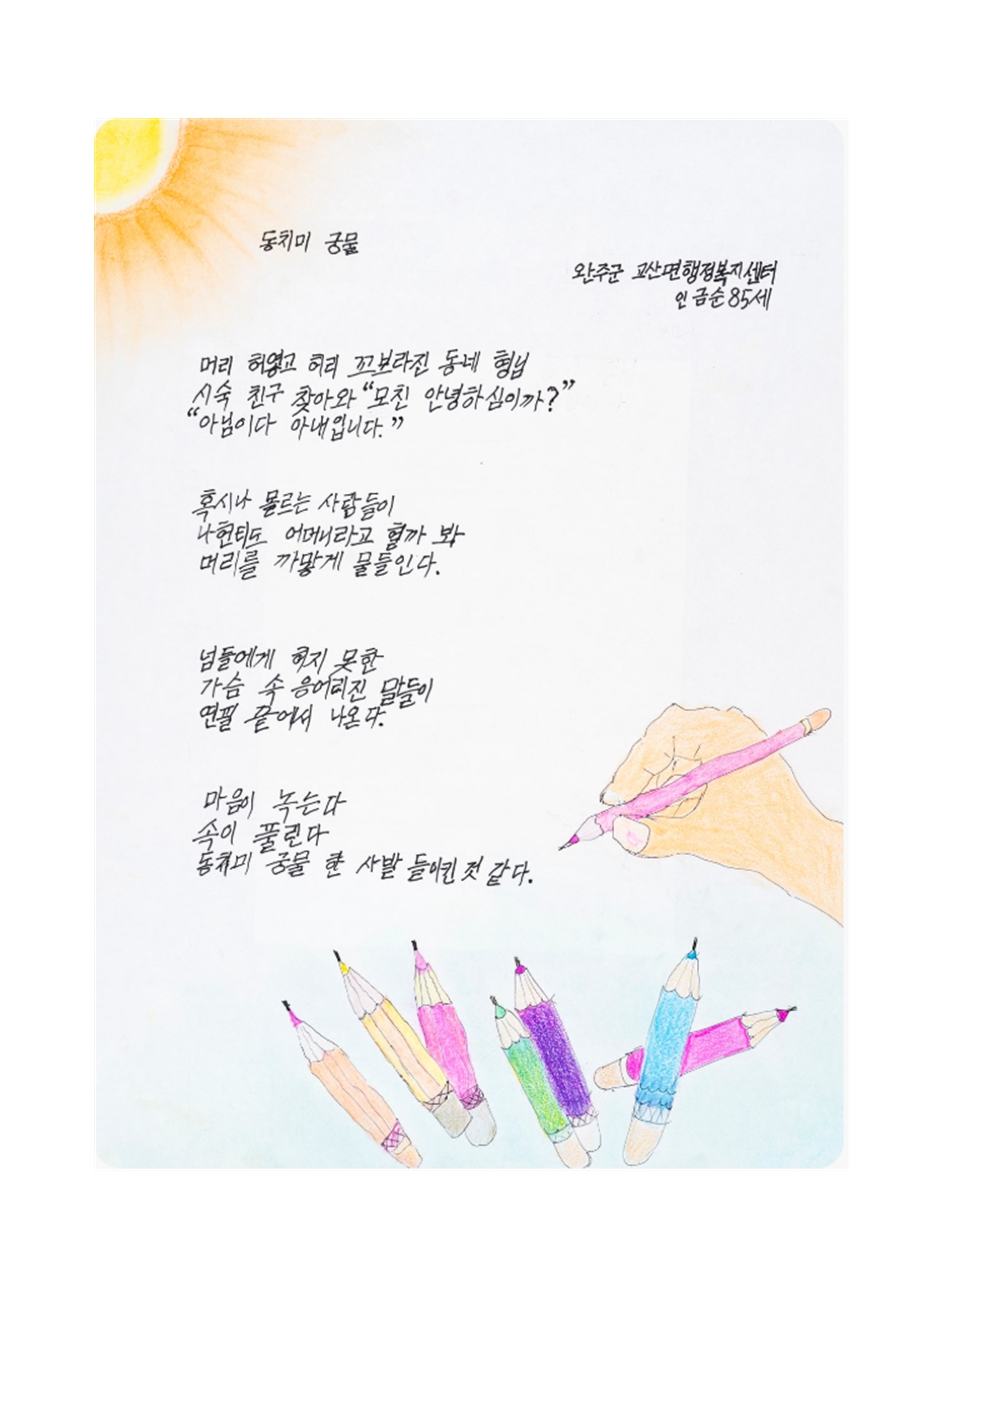 동치미 궁물
완주군 고산면행정복지센터
인금순 85세
머리 허영고 허리 꼬보라진 동네 형님
시숙 친구 찾아와 “모친 안녕하심이까?”
“아님이다 아내입니다.”
혹시나 몰르는 사람들이
나헌티도 어머니라고 헐까 봐
머리를 까맣게 물들인다.
넘들에게 허지 못한
가슴 속 응어리진 말들이
연필 끝에서 나온다.
마음이 녹는다
속이 풀린다
동치미 궁물 한 사발 들이킨 것 같다.